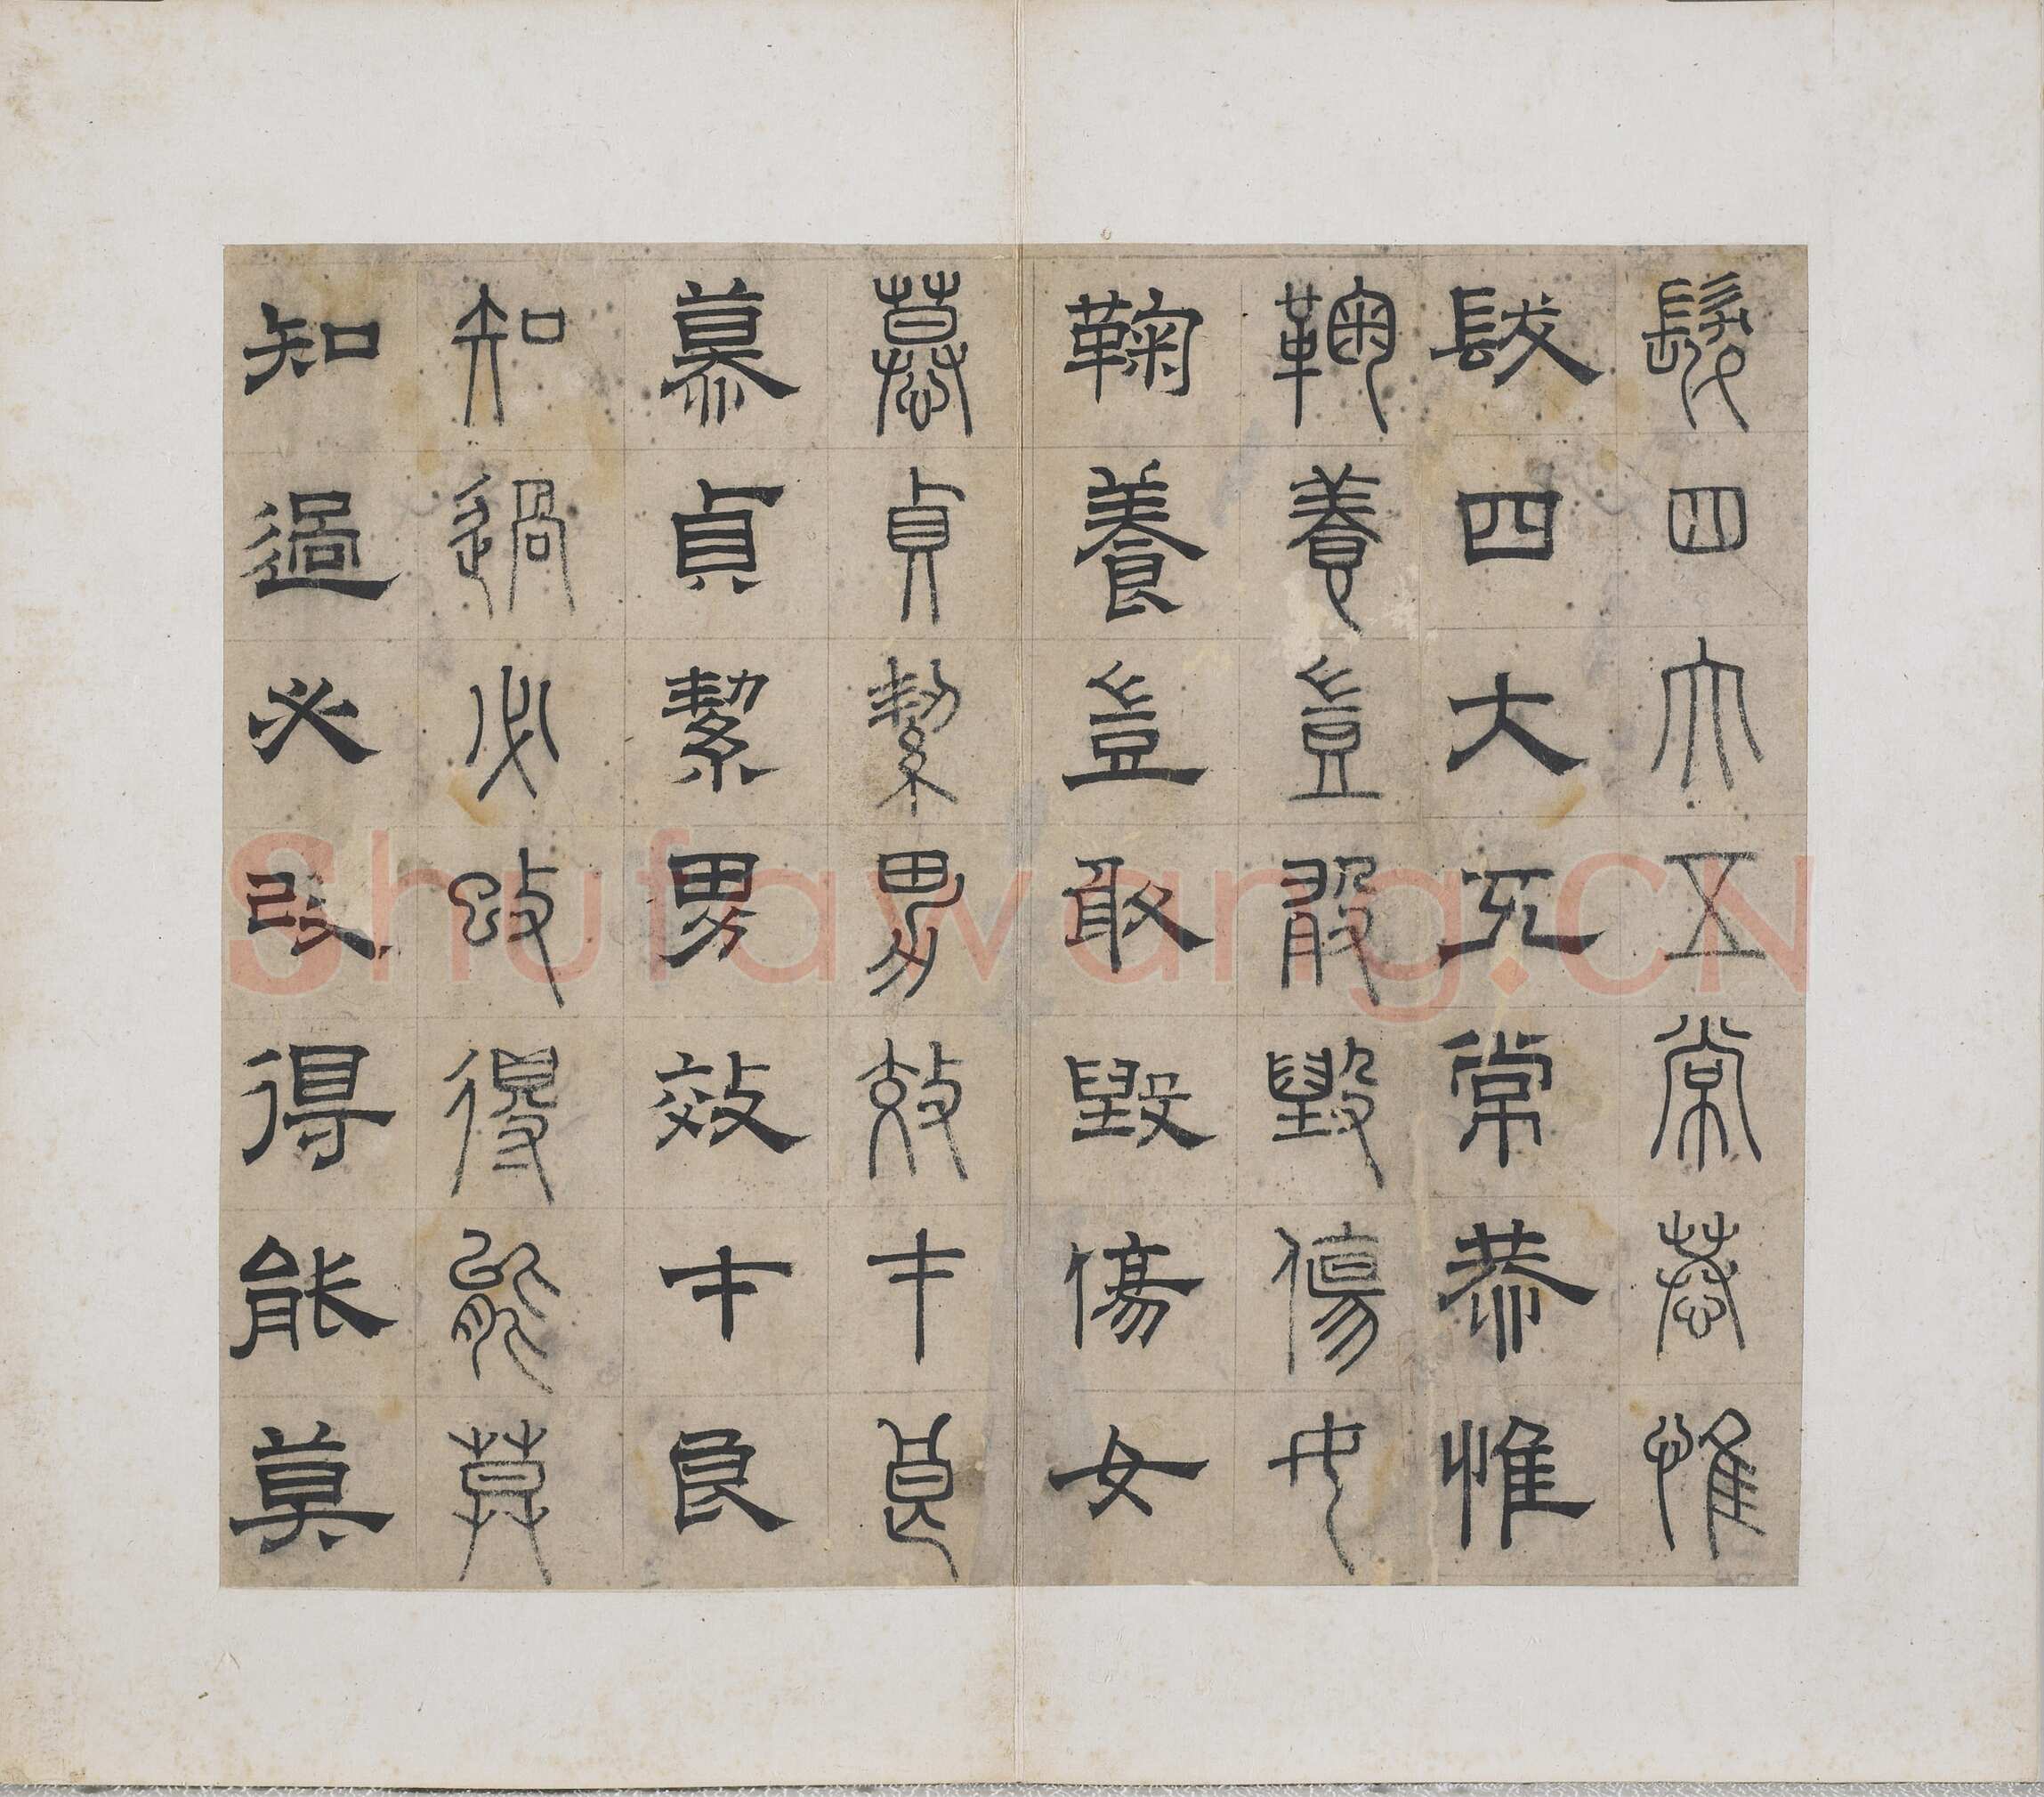 髮四大五常恭惟
髮四大五常恭惟
鞠養豈敢毀傷女
鞠養豈敢毀傷女
慕貞絜男效才良
慕貞絜男效才良
知過必改得能莫
知過必改得能莫
shufawang.CN